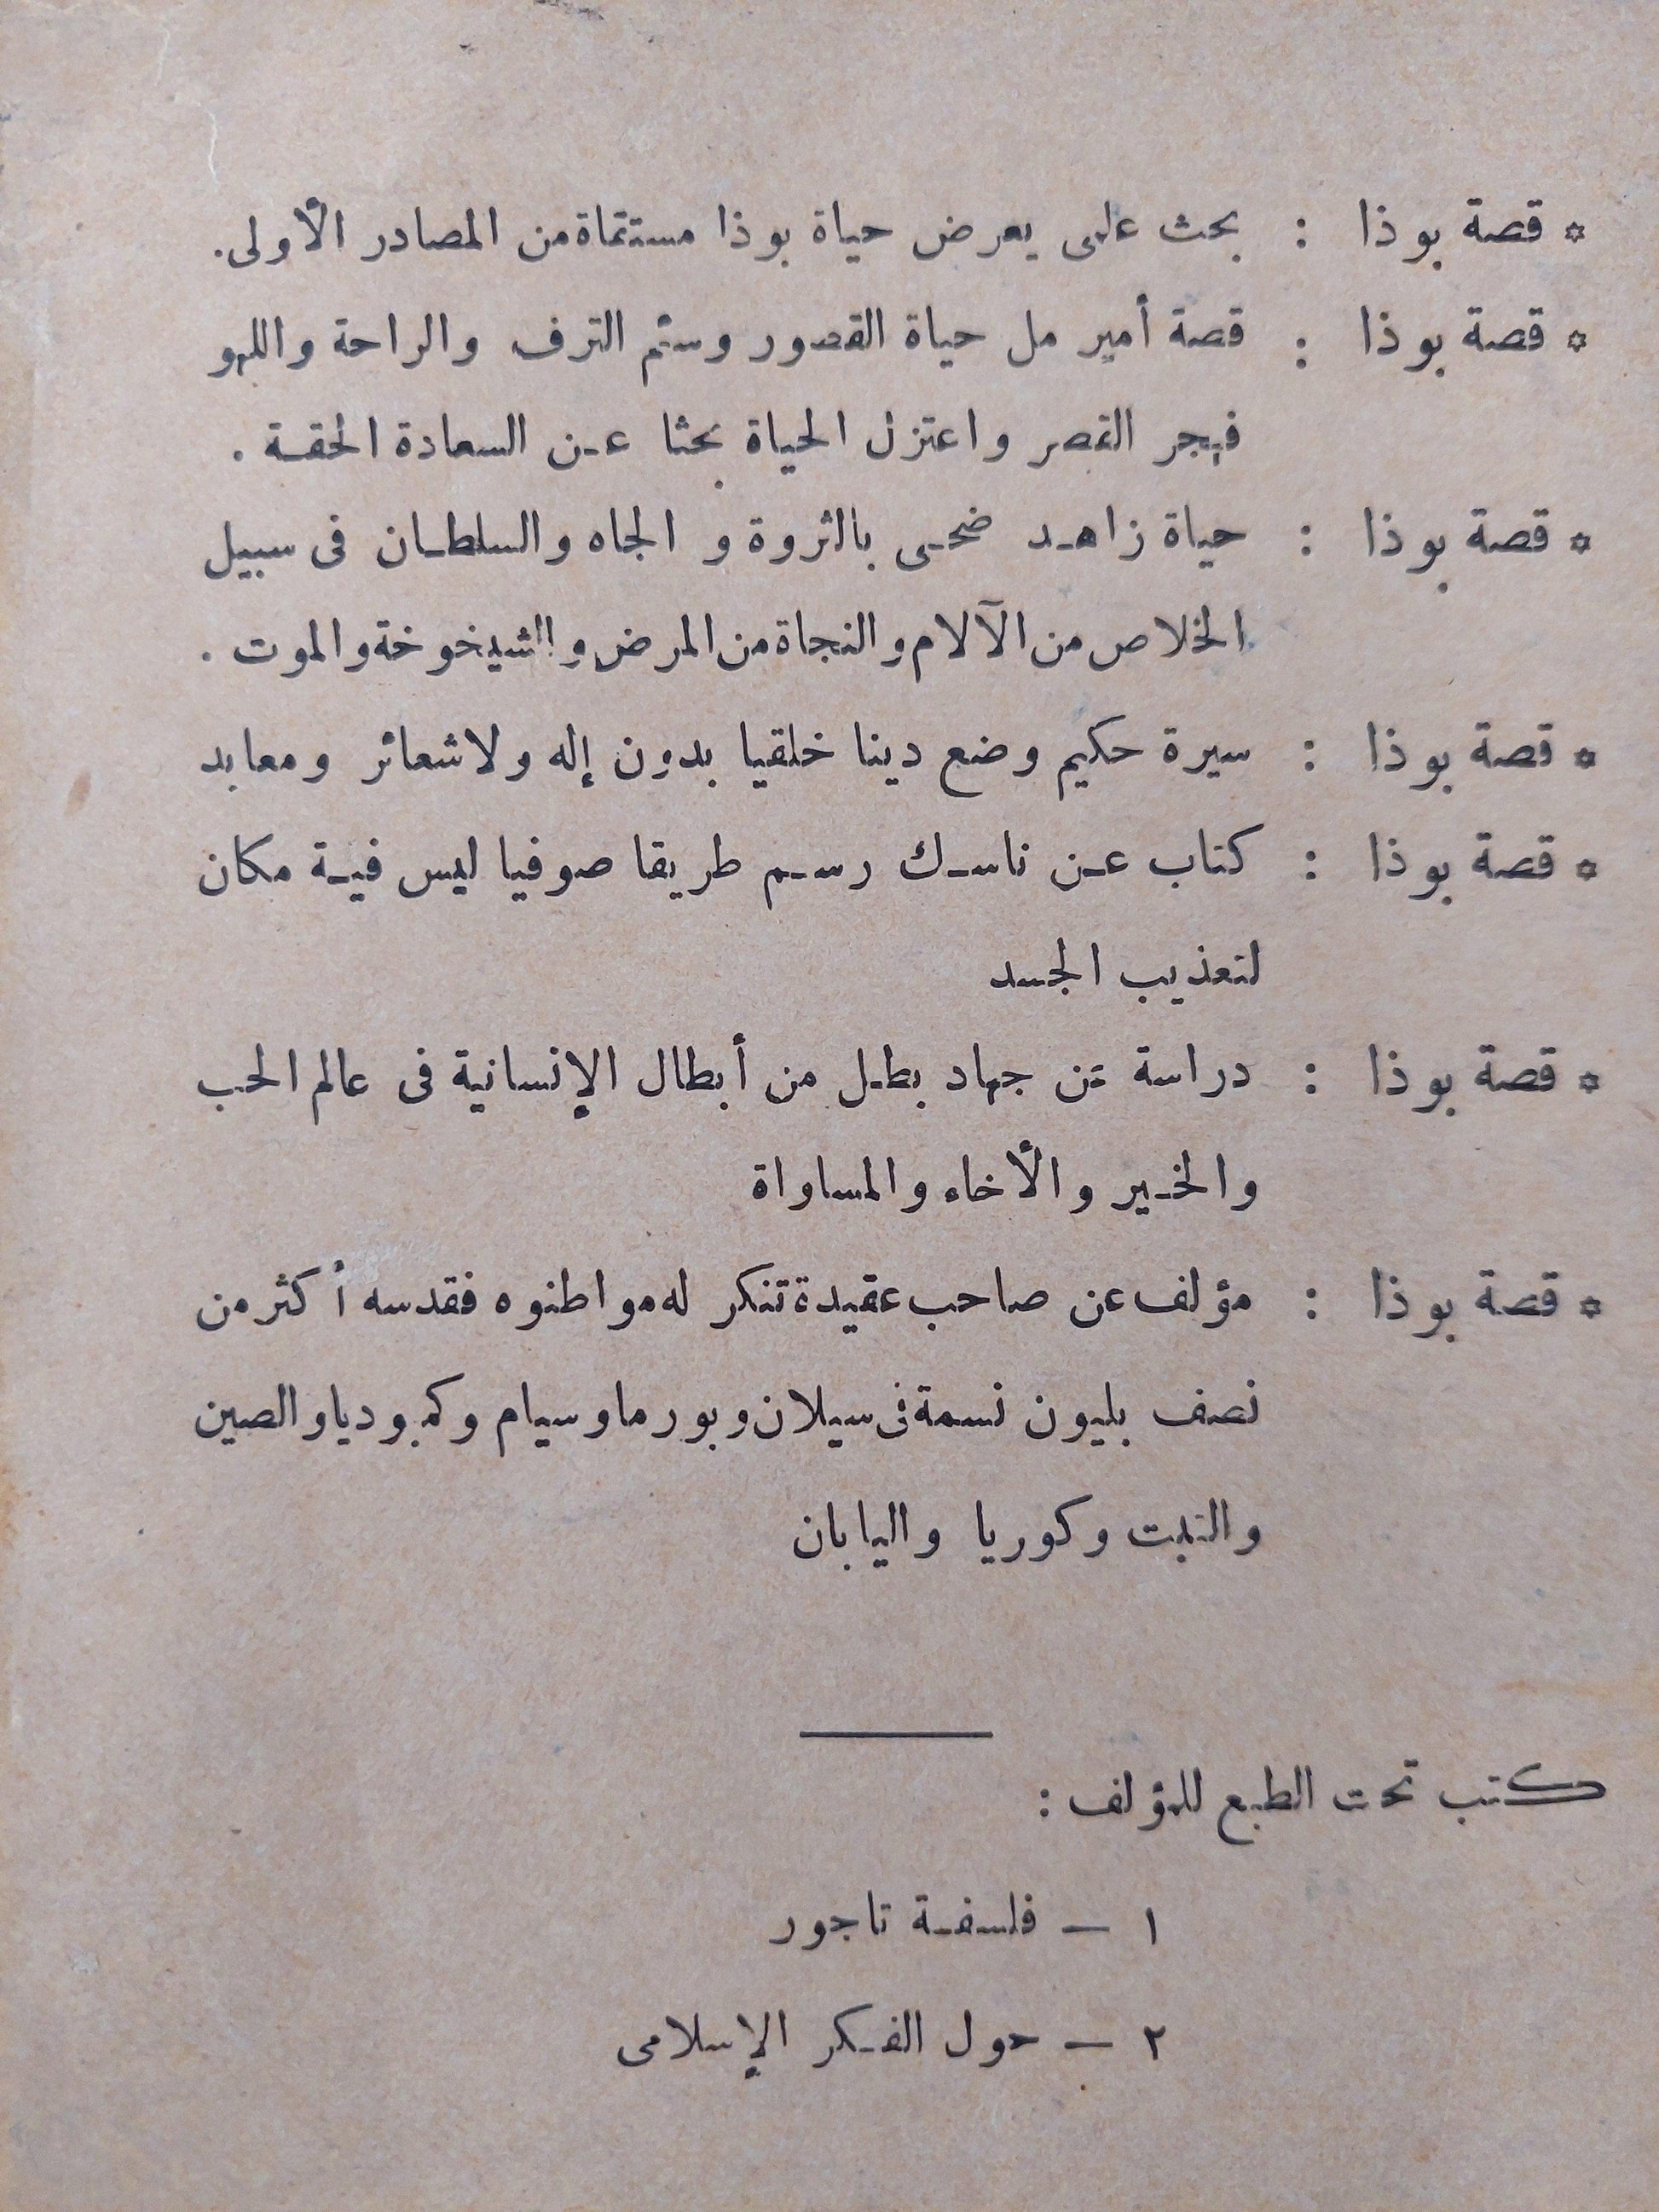 * قصة بوذا : بحث علمى يعرض حياة بوذا مستقاة من المصادر الأولى.
* قصة بوذا : قصة أمير مل حياة القصور وسئم الترف والراحة واللهو
فهجر القصر واعتزل الحياة بحثا عن السعادة الحقة .
* قصة بوذا : حياة زاهد ضحى بالثروة و الجاه والسلطان فى سبيل
الخلاص من الآلام والنجاة من المرض والشيخوخة والموت .
* قصة بوذا : سيرة حكيم وضع دينا خلقيا بدون إله ولا شعائر ومعابد
* قصة بوذا : كتاب عن ناسك رسم طريقا صوفيا ليس فية مكان
لتعذيب الجسد
* قصة بوذا : دراسة عن جهاد بطل من أبطال الإنسانية فى عالم الحب
والخير والأخاء والمساواة
* قصة بوذا : مؤلف عن صاحب عقيدة تنكر له مواطنوه فقدسه أكثر من
نصف بليون نسمة فى سيلان وبورما وسيام وكمبوديا والصين
والتبت وكوريا واليابان
كتب تحت الطبع للمؤلف :
١ — فلسفة تاجور
٢ — حول الفكر الإسلامى